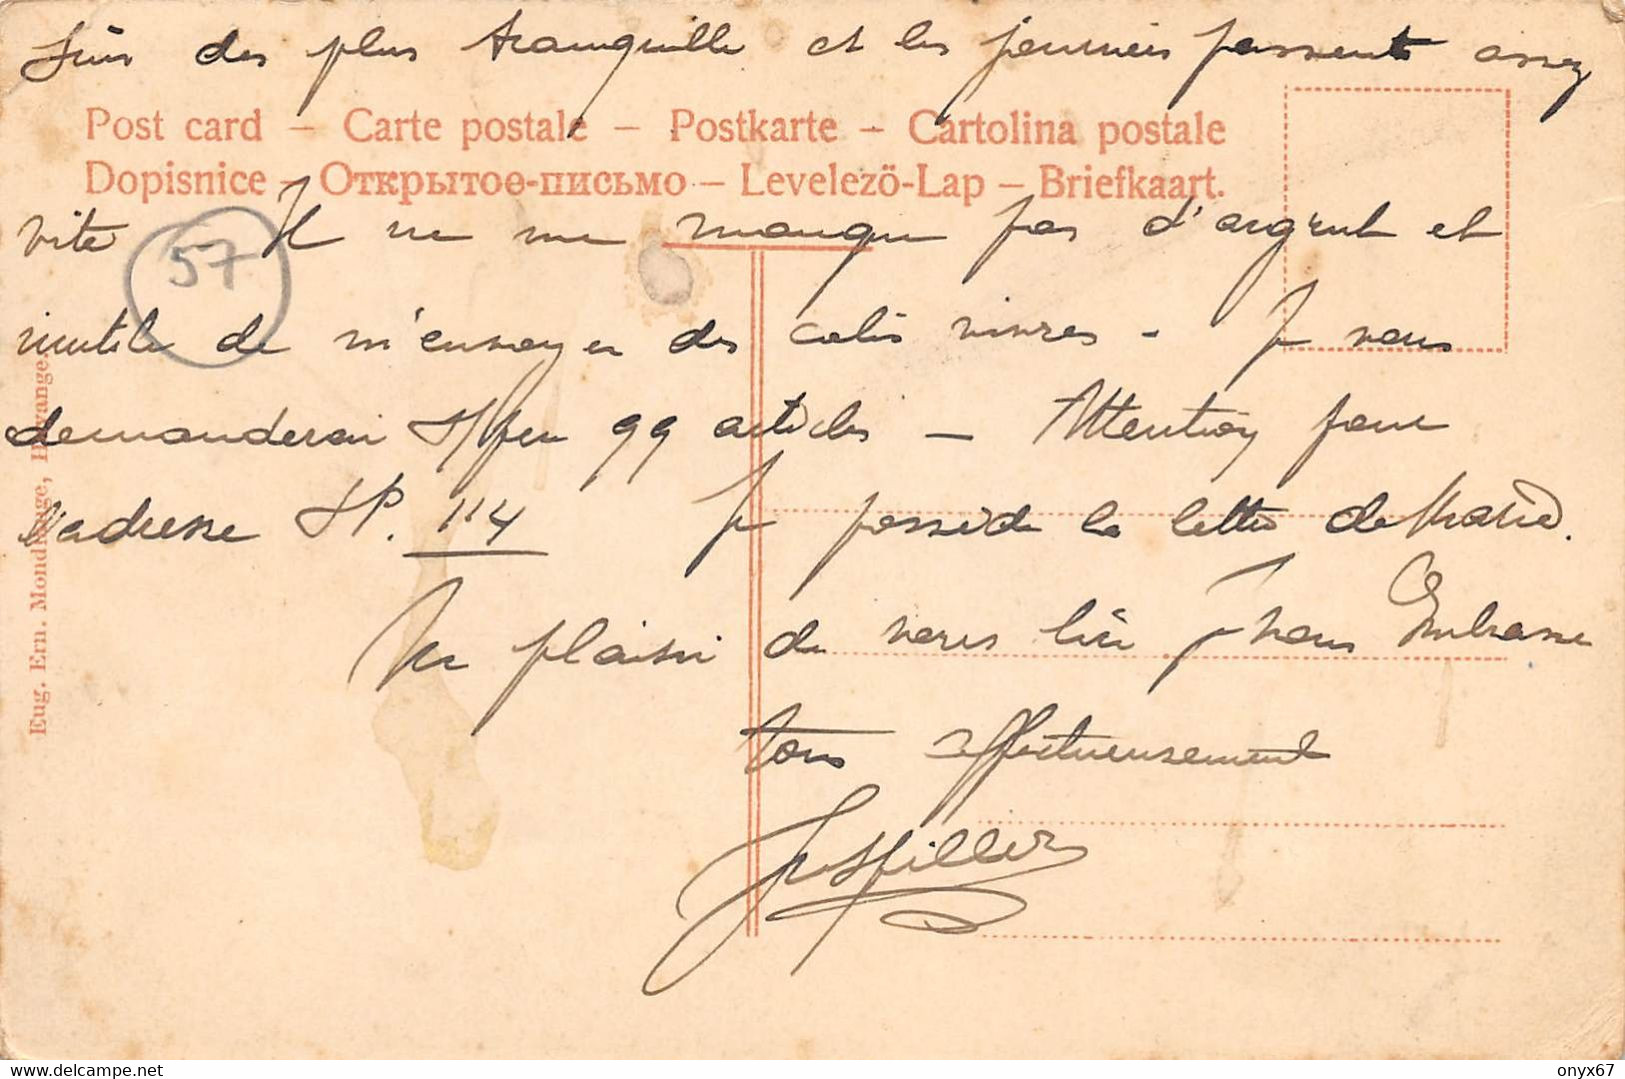 suis des plus tranquille et les journées passent assez
Post card – Carte postale – Postkarte – Cartolina postale
Dopisnice – Открытое-письмо – Levelezö-Lap – Briefkaart.
vite Il ne me manque pas d'argent et
57
inutile de m'envoyer des colis vivres - Je vous
demanderai peu 99 articles – Attention pour
l'adresse SP. 114 Je possède la lettre de Marie.
Au plaisir de vous lire Je vous Embrasse
tous affectueusement
Eug. Ern. Mondlange, Hayange.
onyx67